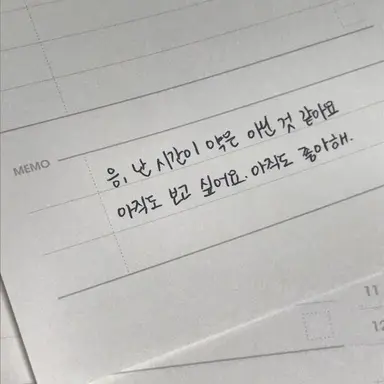 MEMO
응, 난 시간이 약은 아닌 것 같아요
아직도 보고 싶어요. 아직도 좋아해.
11
12